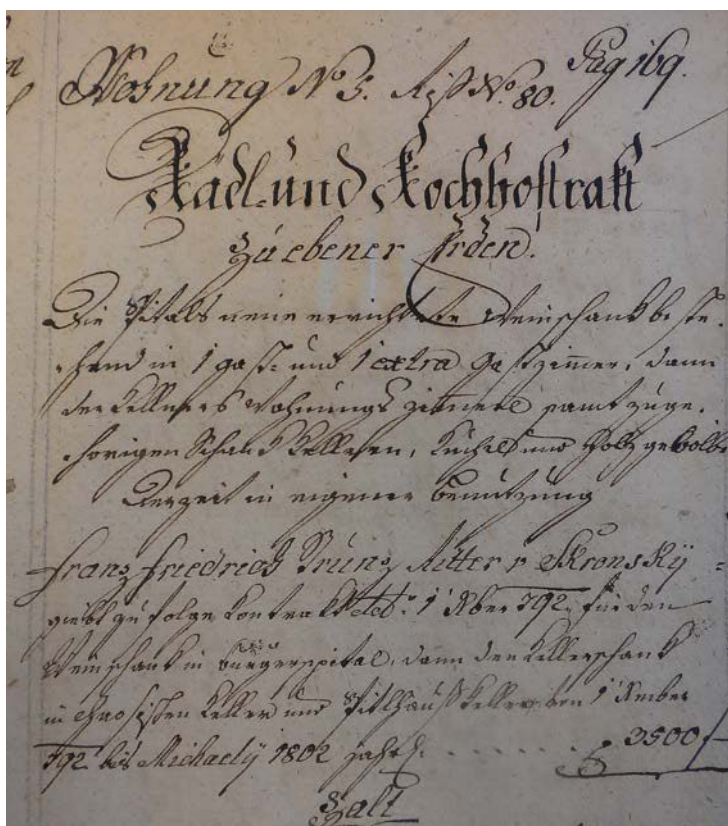 Wohnung No 5. Riß No. 80. Pag 169.
Kädl. und Kochhoftrakt
Zu ebener Erden.
Die Spitals neue errichtete Weinschank beste-
hend in 1 gast- und 1 extra Gastzimmer, dann
der Kellners Wohnungs Zimmer samt zuge-
hörigen Schank Kellern, Kuchel und Holz gewölbe
Derzeit in eigener Benutzung
Franz Friedrich Prunz Ritter v Skronsky
giebt zu folge Contrakt ddo 1 9ber 792. für den
Weinschank in Bürgerspital, dann den Kellerschank
in Keller und Keller von 1
792 bis Michaely 1802 jährl. . . . . . . f 3500
Zalt